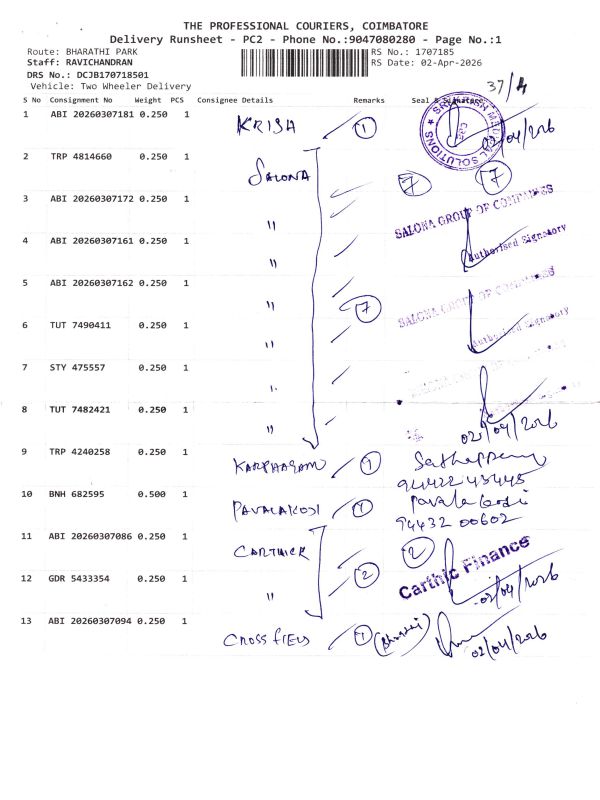 THE PROFESSIONAL COURIERS, COIMBATORE
Delivery Runsheet - PC2 - Phone No.:9047080280 - Page No.:1
Route: BHARATHI PARK RS No.: 1707185
Staff: RAVICHANDRAN RS Date: 02-Apr-2026
DRS No.: DCJB170718501
Vehicle: Two Wheeler Delivery
37/4
S No Consignment No Weight PCS Consignee Details Remarks Seal & Signature
1 ABI 20260307181 0.250 1 KRISH 1
MEDICAL SOLUTIONS
2 TRP 4814660 0.250 1 SALONA 7 7
3 ABI 20260307172 0.250 1 "
SALONA GROUP OF COMPANIES
4 ABI 20260307161 0.250 1 "
Authorised Signatory
5 ABI 20260307162 0.250 1 " 7
SALONA GROUP OF COMPANIES
6 TUT 7490411 0.250 1 "
Authorised Signatory
7 STY 475557 0.250 1 "
8 TUT 7482421 0.250 1 "
02/04/2026
9 TRP 4240258 0.250 1 KARPHAGAM 1
10 BNH 682595 0.500 1 PAVALAKODI 1
94432 00602
11 ABI 20260307086 0.250 1 2
Carthic Finance
12 GDR 5433354 0.250 1 " 2
02/04/2026
13 ABI 20260307094 0.250 1 CROSSFIELD 1
02/04/2026